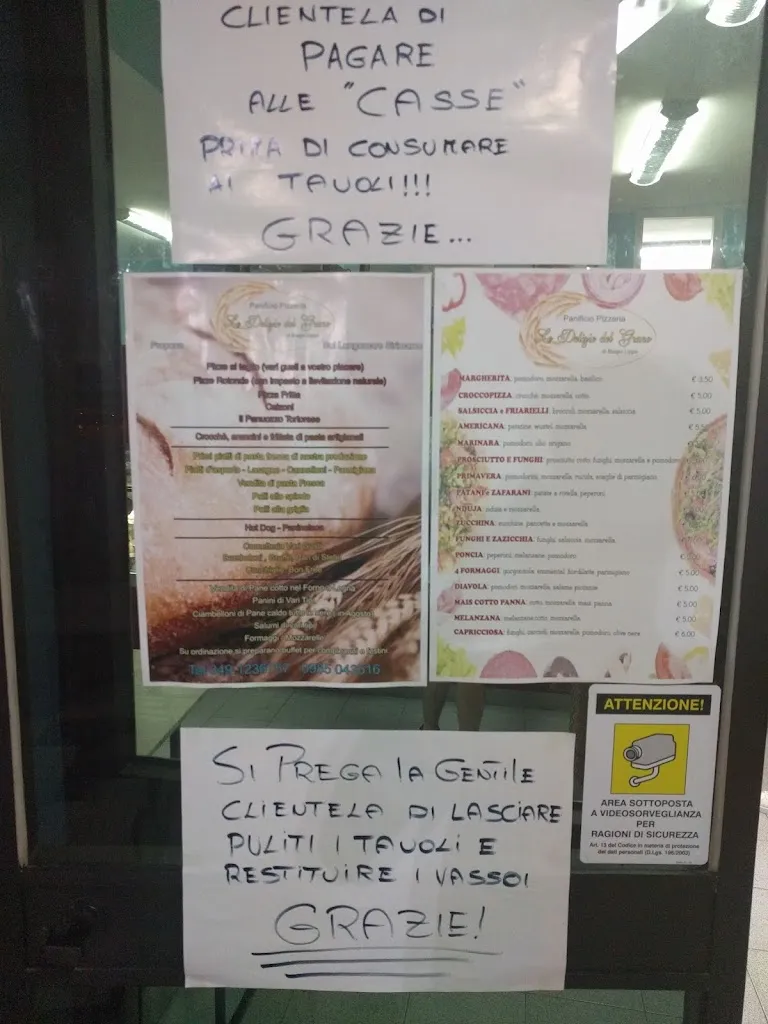 CLIENTELA DI
PAGARE
ALLE "CASSE"
PRIMA DI CONSUMARE
AI TAVOLI!!!
GRAZIE...
Panificio Pizzeria
Le Delizie del Grano
Propone
Sul Lungomare Sirimarco
Pizze al taglio (vari gusti a vostro piacere)
Pizze Rotonde (con impasto a lievitazione naturale)
Pizze Fritte
Calzoni
Il Panuozzo Tortorese
Crocchè, arancini e frittata di pasta artigianali
Primi piatti di pasta fresca di nostra produzione
Piatti d'asporto - Lasagna - Cannelloni - Parmigiana
Vendita di pasta Fresca
Polli allo spiedo
Polli alla griglia
Hot Dog - Paninoteca
Cornetteria
Vendita di Pane cotto nel Forno a legna
Panini di Vari Tipi
Ciambelloni di Pane caldo
Salumi
Formaggi - Mozzarelle
Su ordinazione si preparano buffet per compleanni e festini
Tel 349 0985 043516
Panificio Pizzeria
Le Delizie del Grano
MARGHERITA: pomodoro, mozzarella, basilico € 3,50
CROCCOPIZZA: crocchè, mozzarella, cotto € 5,00
SALSICCIA e FRIARIELLI: broccoli, mozzarella, salsiccia € 5,00
AMERICANA: patatine, wustel, mozzarella
MARINARA: pomodoro, olio, origano
PROSCIUTTO E FUNGHI: prosciutto cotto, funghi, mozzarella e pomodoro
PRIMAVERA: pomodorini, mozzarella, rucola, scaglie di parmigiano
PATANI e ZAFARANI: patate a rosella, peperoni
NDUJA: nduia e mozzarella
ZUCCHINA: zucchine, pancetta e mozzarella
FUNGHI E ZAZICCHIA: funghi, salsiccia, mozzarella
PONCIA: peperoni, melanzane, pomodoro
4 FORMAGGI: gorgonzola, emmental, fiordilatte, parmigiano € 5,00
DIAVOLA: pomodoro, mozzarella, salame piccante € 5,00
MAIS COTTO PANNA: cotto, mozzarella, mais, panna € 5,00
MELANZANA: melanzane cotto, mozzarella € 5,00
CAPRICCIOSA: funghi, carciofi, mozzarella, pomodoro, olive nere € 6,00
ATTENZIONE!
AREA SOTTOPOSTA
A VIDEOSORVEGLIANZA
PER
RAGIONI DI SICUREZZA
Art. 13 del Codice in materia di protezione
dei dati personali (D.Lgs. 196/2003)
SI PREGA la GENTILE
CLIENTELA DI LASCIARE
PULITI I TAVOLI E
RESTITUIRE I VASSOI
GRAZIE!